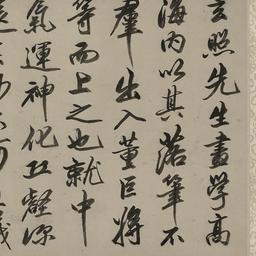 玄照先生畫學高
海内以其落筆不
羣出入董巨將
等而上之也就中
氣運神化丘壑深